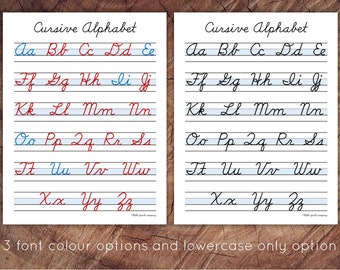 Cursive Alphabet
Aa Bb Cc Dd Ee
Ff Gg Hh Ii Jj
Kk Ll Mm Nn
Oo Pp Qq Rr Ss
Tt Uu Vv Ww
Xx Yy Zz
Cursive Alphabet
Aa Bb Cc Dd Ee
Ff Gg Hh Ii Jj
Kk Ll Mm Nn
Oo Pp Qq Rr Ss
Tt Uu Vv Ww
Xx Yy Zz
3 font colour options and lowercase only option